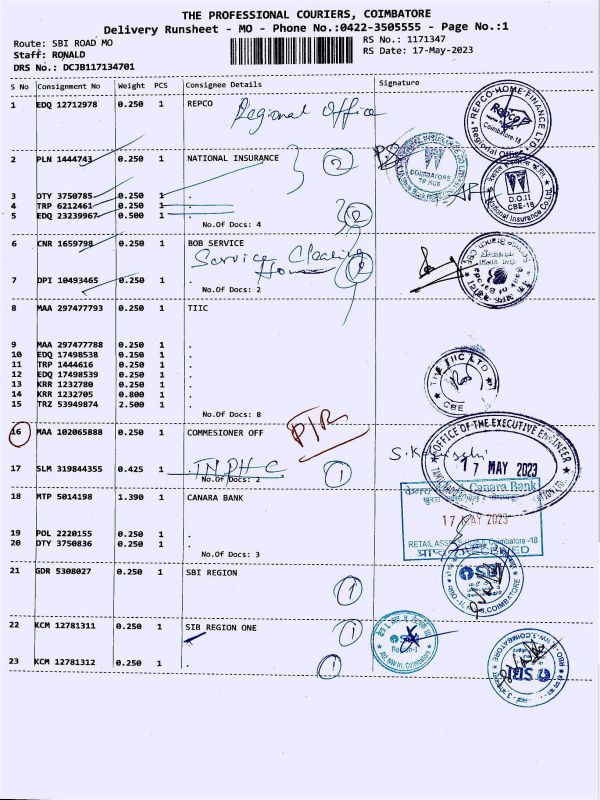 THE PROFESSIONAL COURIERS, COIMBATORE
Delivery Runsheet - MO - Phone No.:0422-3505555 - Page No.:1
Route: SBI ROAD MO RS No.: 1171347
Staff: RONALD RS Date: 17-May-2023
DRS No.: DCJB117134701
S No Consignment No Weight PCS Consignee Details Signature
1 EDQ 12712978 0.250 1 REPCO
Regional Office
REPCO HOME FINANCE LTD
Repco
Coimbatore-18
Regional Office
2 PLN 1444743 0.250 1 NATIONAL INSURANCE
2
COIMBATORE
TP HUB
D.O.II
CBE-18
National Insurance Co.Ltd
3 OTY 3750785 0.250 1 .
4 TRP 6212461 0.250 1 .
5 EDQ 23239967 0.500 1 .
No.Of Docs: 4
2
6 CNR 1659798 0.250 1 BOB SERVICE
Service Clearing
House
7 DPI 10493465 0.250 1 .
No.Of Docs: 2
8 MAA 297477793 0.250 1 TIIC
9 MAA 297477788 0.250 1 .
10 EDQ 17498538 0.250 1 .
11 TRP 1444616 0.250 1 .
12 EDQ 17498539 0.250 1 .
13 KRR 1232780 0.250 1 .
14 KRR 1232705 0.800 1 .
15 TRZ 53949874 2.500 1 .
No.Of Docs: 8
THE TIIC LTD
CBE
16 MAA 102065888 0.250 1 COMMESIONER OFF
P/R
OFFICE OF THE EXECUTIVE ENGINEER
17 MAY 2023
17 SLM 319844355 0.425 1 .
TNPHC
No.Of Docs: 2
1
18 MTP 5014198 1.390 1 CANARA BANK
Canara Bank
17 MAY 2023
RETAIL ASSETS HUB, Coimbatore -18
RECEIVED
19 POL 2220155 0.250 1 .
20 OTY 3750836 0.250 1 .
No.Of Docs: 3
21 GDR 5308027 0.250 1 SBI REGION
1
SBI
COIMBATORE
22 KCM 12781311 0.250 1 SIB REGION ONE
1
Region-I
23 KCM 12781312 0.250 1 .
1
SBI
COIMBATORE